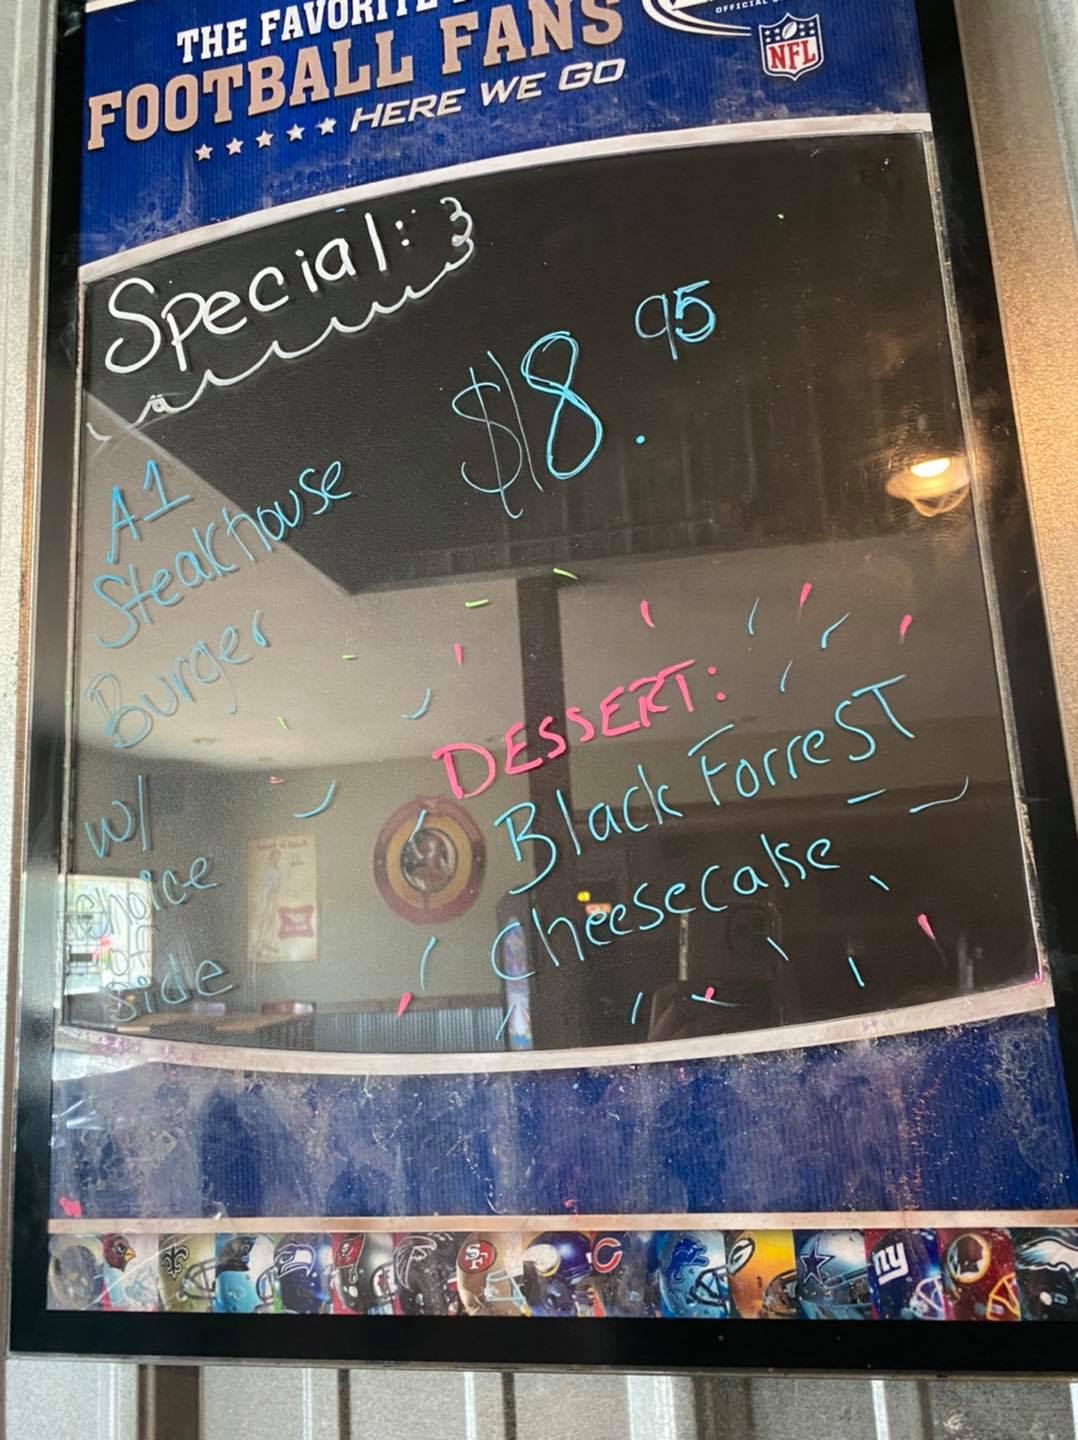 THE FAVORITE
FOOTBALL FANS
HERE WE GO
NFL
Special:
$18.95
A1
Steakhouse
Burger
w/
choice
of
side
DESSERT:
Black ForresT
Cheesecake
SF
C
G
ny